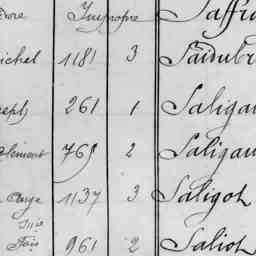 Impropre Saffra
ichel 1181 3
seph 261 1 Saligau
Clément 765 2 Saligau
Ange 1137 3 Saligot
Fois 961 2 Saliot